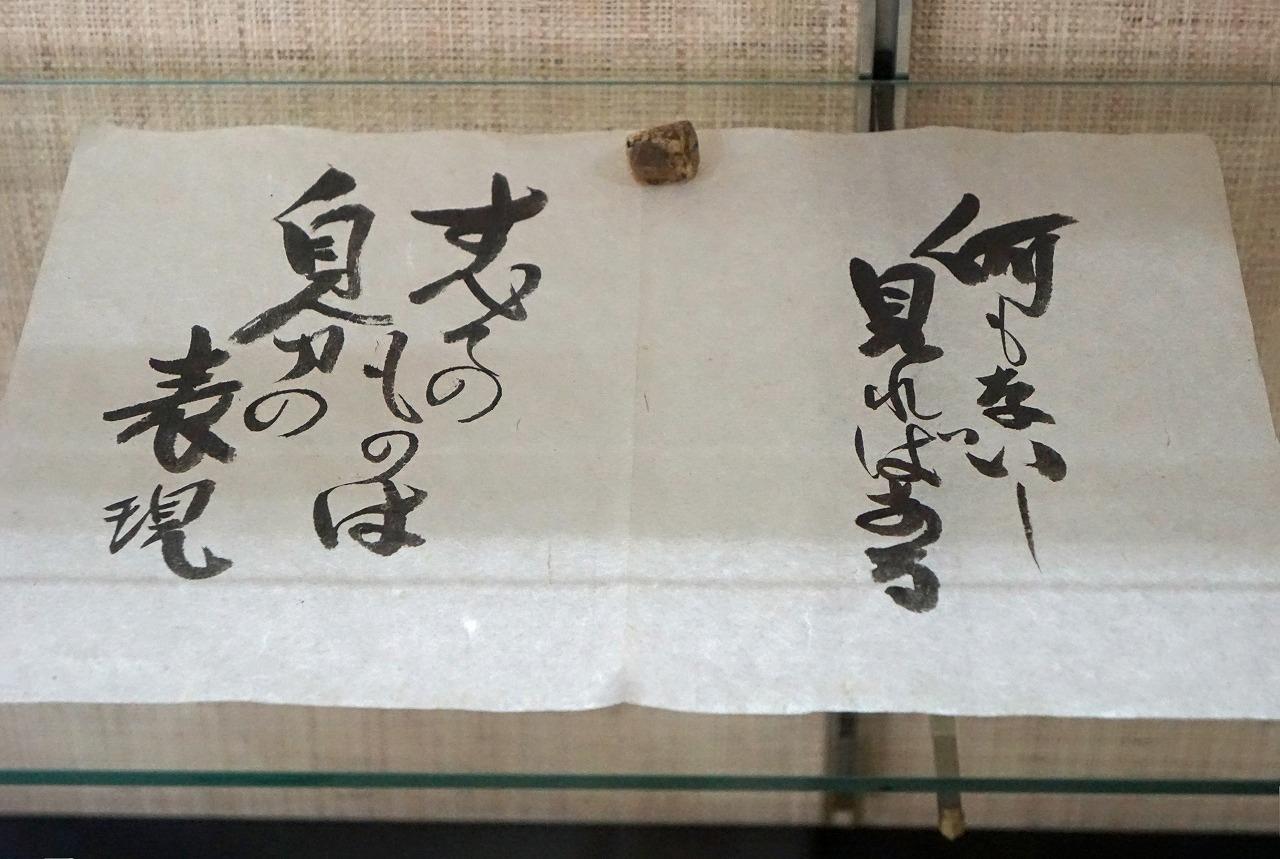 何もない―
見ればある
すべての
ものは
自分の
表現